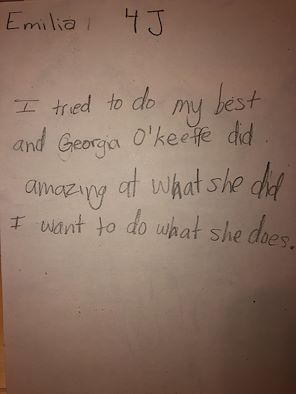 Emilia 4 J
I tried to do my best
and Georgia O'keeffe did.
amazing at what she did
I want to do what she does.